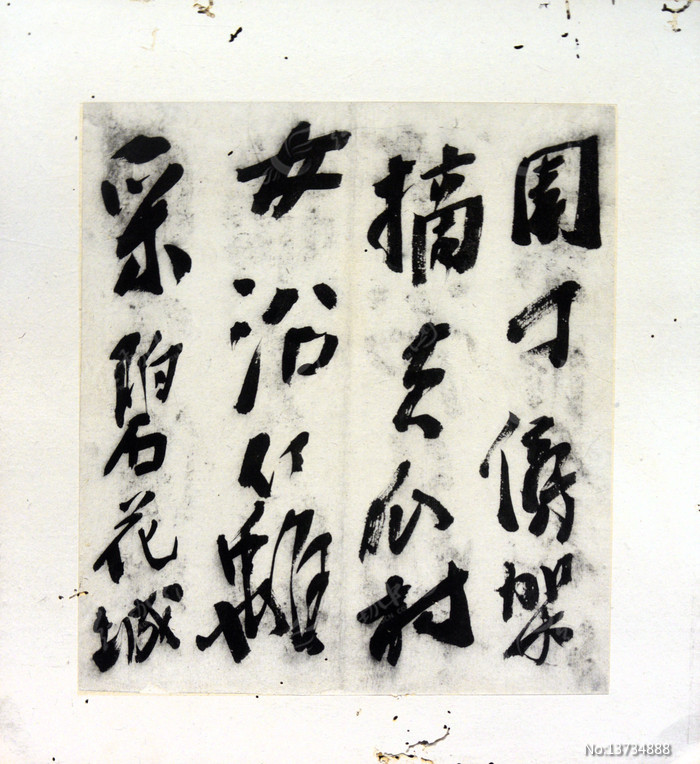 園丁傍架
摘黄瓜村
女沿籬
采碧花城
No:13734888